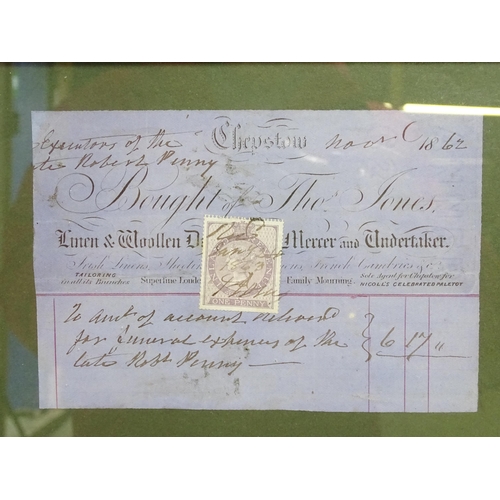 Executors of the Chepstow Novr 1862
late Robert Penny
Bought of Thos. Jones,
Linen & Woollen Mercer and Undertaker.
Irish Linens, French Cambrics &c
TAILORING Superfine Family Mourning. Sole Agent for Chepstow for
in all its Branches NICOLL'S CELEBRATED PALETOT
ONE PENNY
To amt of account delivered
for funeral expenses of the 6 17 "
late Robt Penny —